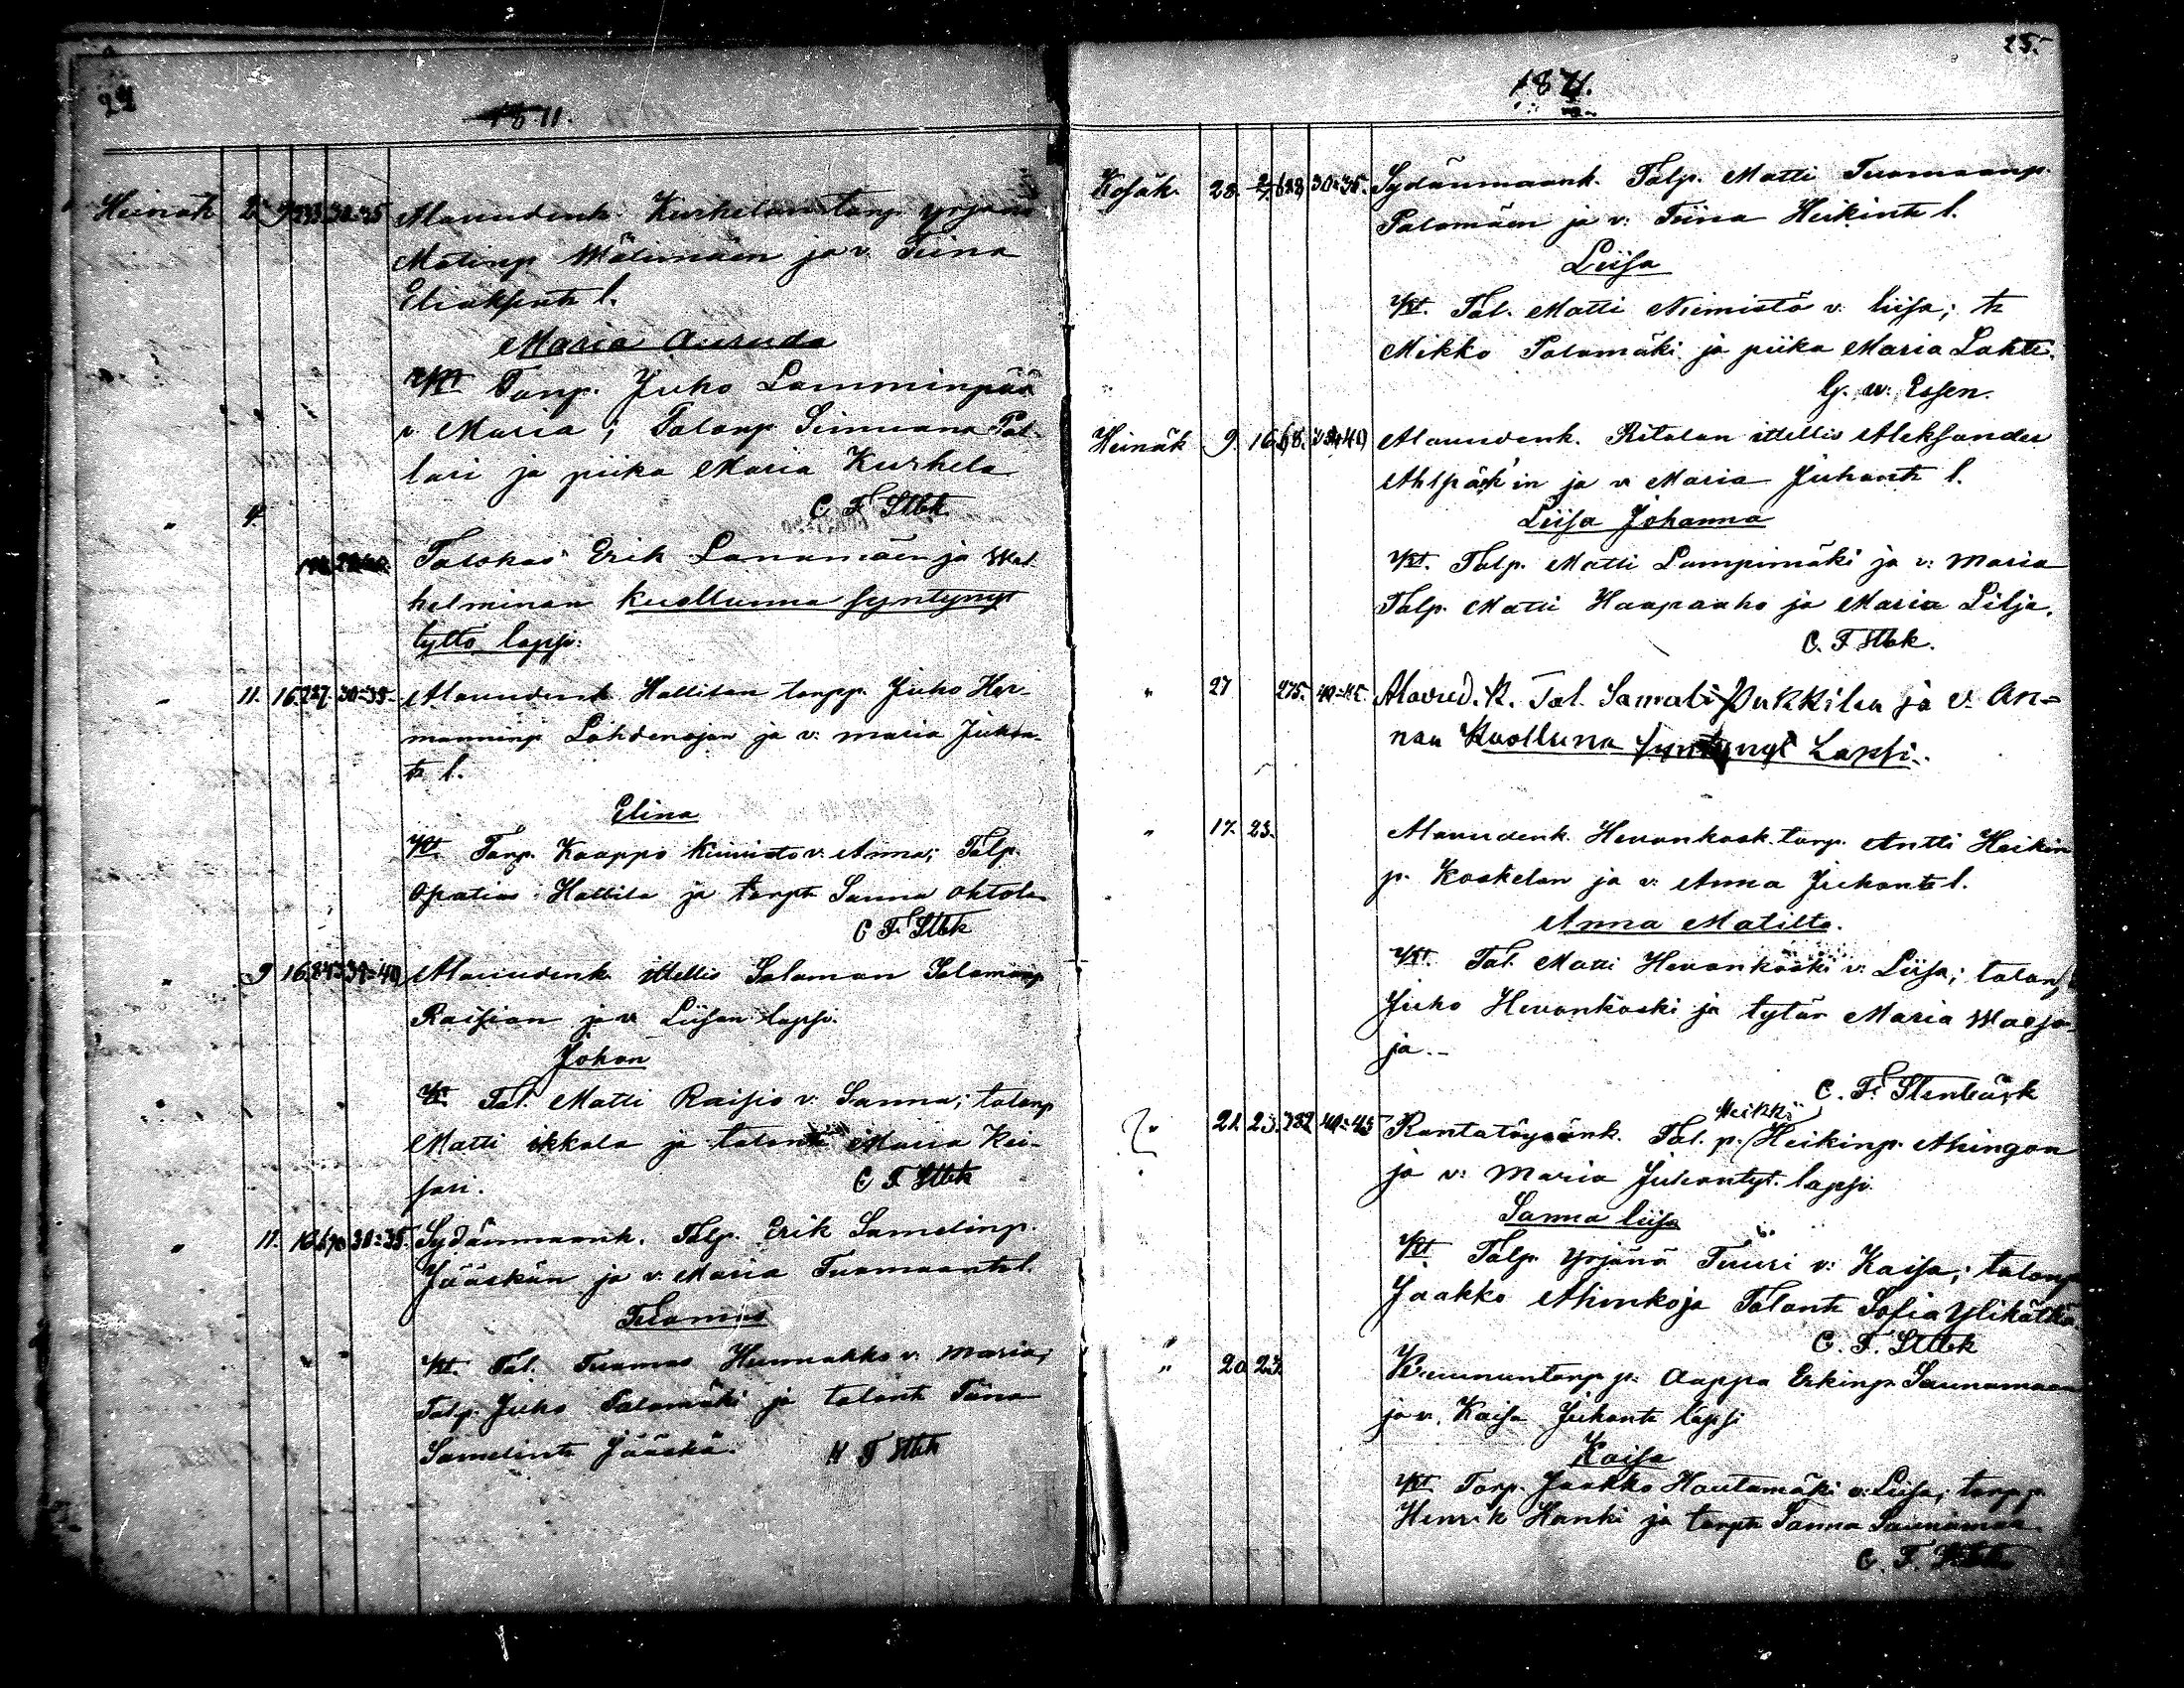 24
1871.
Heinäk 2. 9 233. 30=35 Alavudenk. Kurhelan torp. Yrjänä
Matinp. Wälimäen ja v. Tiina
Eliaksente l.
Maria Auruda
Kt. Torp. Juho Lamminpää
v. Maria; Talonp Simuana Pal-
lari ja piika Maria Kurhela
C F Stbk
" 4.
Talokas Erik Lanamäen ja Wil
helminan kuollunna syntynyt
tyttö lapsi.
" 11. 16. 727. 30=35. Alavudenk Hallilan torpp. Juho Her-
manninp Lähdenojan ja v. Maria Juhon-
tr l.
Elina
Kt. Torp. Kaappo Kiimisto v. Anna; Talp.
Hallila ja torptr Sanna Ohtola
C F. Stbk
" 9 16. 843. 39=40, Alavudenk. itellis Salomon Salamonp
Raision ja v. Liisan lapsi.
Johan
Kt. Tal. Matti Raisio v. Sanna; talonp
Matti Ikkala ja talontr Maria Kei-
sari. C F Stbk
" 11. 16. 670 30=35. Sydänmaank. Talp. Erik Samelinp.
Jääskän ja v. Maria Tuomaantr l.
Tuomas
Kt. Tal. Tuomas Hunnakko v. Maria;
Talp. Juho Palomäki ja talontr Tiina
Samelintr Jääskä. K F Stbk
25.
1871.
Kesäk. 28. 2/7. 628, 30=35. Sydänmaank. Talp. Matti Tuomaanp.
Palomäen ja v: Tiina Heikintr l.
Liisa
Kt. Tal. Matti Niemistö v. Liisa; tr
Mikko Palomäki ja piika Maria Lahti.
G. w: Essen.
Heinäk 9. 16. 68. 40, Alavudenk. Ritolan itellis Aleksander
Ahlpäk'in ja v. Maria Juhontr l.
Liisa Johanna
Kt. Talp. Matti Lampimäki ja v: Maria
Talp. Matti Haapaaho ja Maria Lilja.
C. F Stbk.
" 27 275. 40=45. Alavud. K. Tal. Samuli Pukkilan ja v. An=
nan Kuolluna syntynyt Lapsi.
" 17. 23. Alavudenk. Hevonkosk. torp. Antti Heikin
p. Koskelan ja v: Anna Juhontr l.
Anna Matilta.
Kt. Tal. Matti Hevonkoski v: Liisa; talonp
Juho Hevonkoski ja tytär Maria Warjo-
ja.-
C. F. Stenbäck
" 21. 23. 782 40=45 Rantatöysänk. Tal. p. Heikki Heikinp. Ahingon
ja v: Maria Juhontyt. lapsi
Sanna Liisa
Kt. Talp. Yrjänä Tuuri v: Kaisa; talonp
Jaakko Ahinko ja Talontr Sofia Ylikätkä
C. F. Stbk
" 20. 23. Kruununtorp. p. Aappo Erkinp. Saunamaan
ja v. Kaisa Juhontr lapsi
Kaisa
Kt. Torp. Jaakko Hautamäki v: Liisa; torpp.
Henrik Hanki ja torptr Sanna Saunamaa.
C. F. Stbk